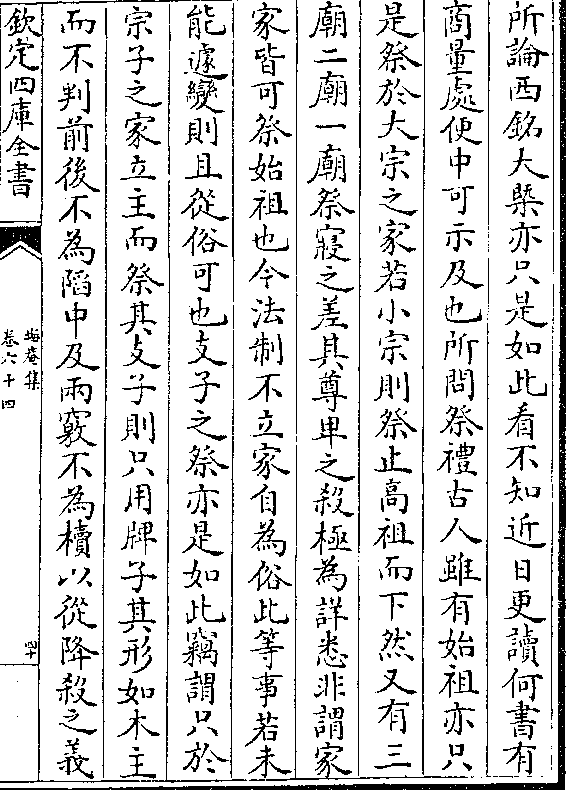 所論西銘大槩亦只是如此看不知近日更讀何書有
商量處便中可示及也所問祭禮古人雖有始祖亦只
是祭於大宗之家若小宗則祭止高祖而下然又有三
廟二廟一廟祭寢之差其尊卑之殺極為詳悉非謂家
家皆可祭始祖也今法制不立家自為俗此等事若未
能遽變則且從俗可也支子之祭亦是如此竊謂只於
宗子之家立主而祭其支子則只用牌子其形如木主
而不判前後不為陷中及兩竅不為櫝以從降殺之義
欽定四庫全書
晦庵集
卷六十四
四十